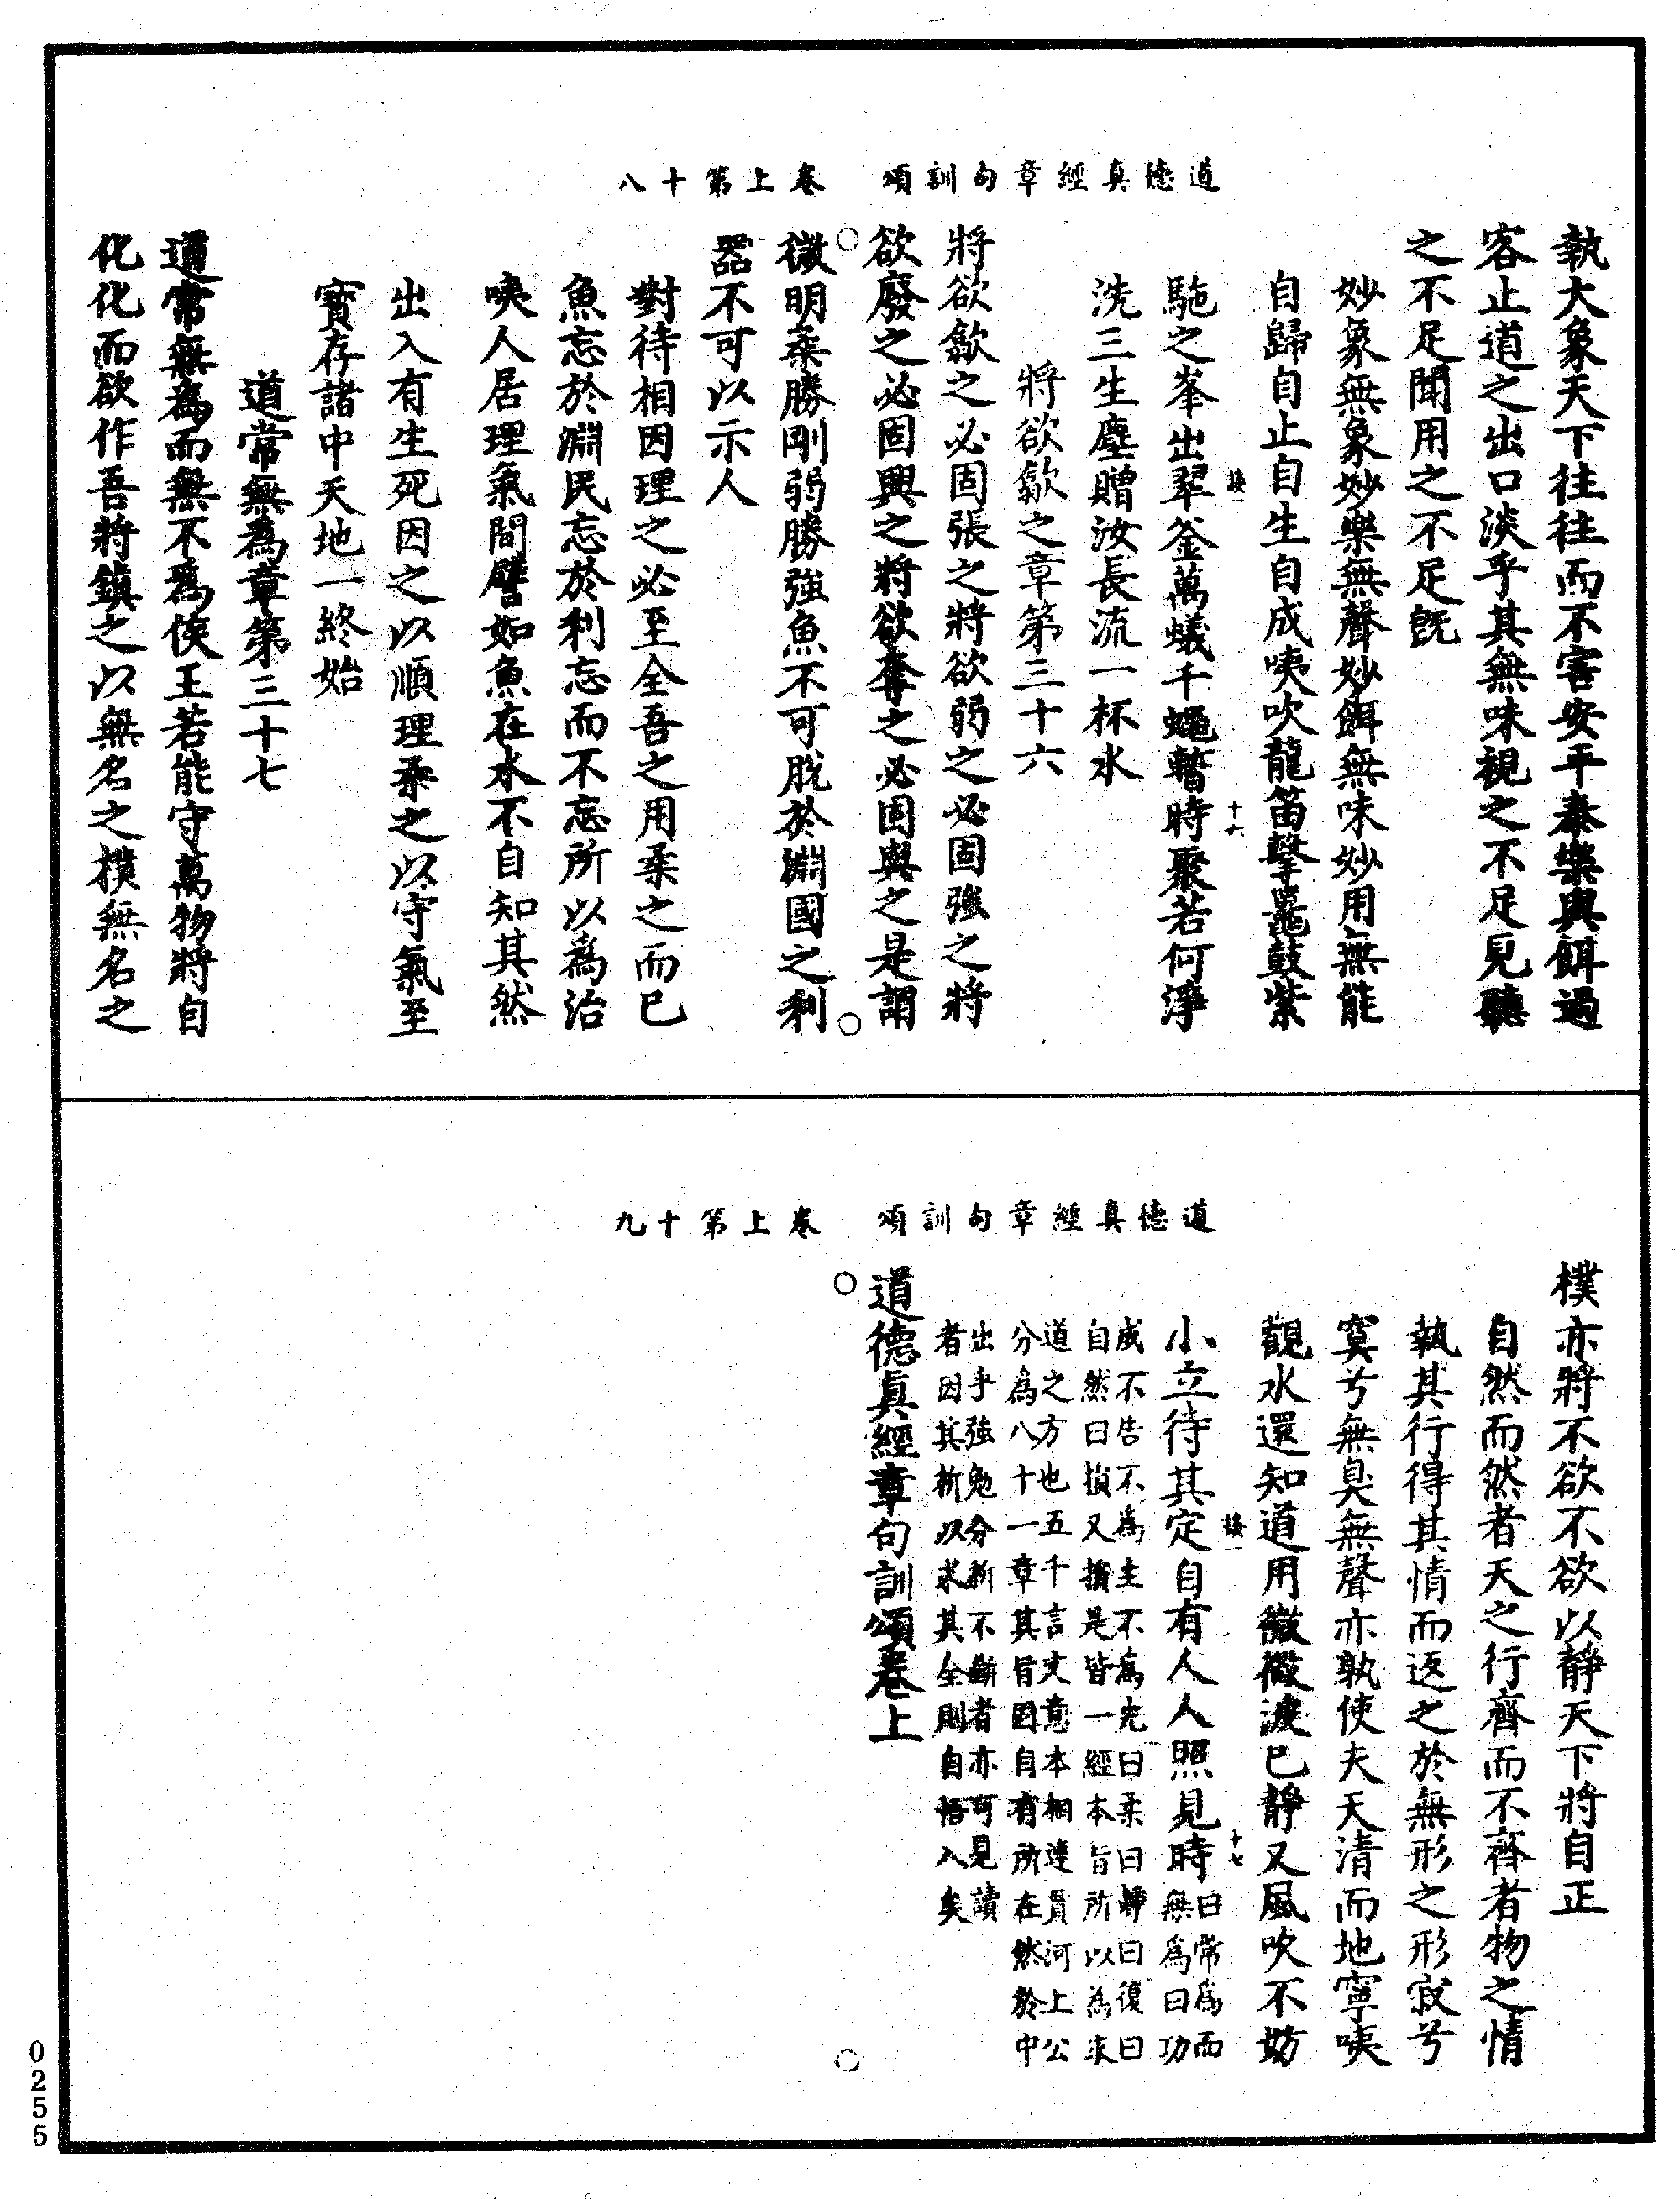 道德真經章句訓頌　卷上第十八
執大象天下往往而不害安平泰樂與餌過
客止道之出口淡乎其無味視之不足見聽
之不足聞用之不足既
妙象無象妙樂無聲妙餌無味妙用無能
自歸自止自生自成咦吹龍笛擊鼉鼓紫
駞之峯出翠釜萬蟻千蠅暫時聚若何淨
談一
十六
洗三生塵贈汝長流一杯水
將欲歙之章第三十六
將欲歙之必固張之將欲弱之必固強之將
欲廢之必固興之將欲奪之必固與之是謂
微明柔勝剛弱勝強魚不可脫於淵國之利
器不可以示人
對待相因理之必至全吾之用柔之而已
魚忘於淵民忘於利忘而不忘所以為治
咦人居理氣間譬如魚在水不自知其然
出入有生死因之以順理柔之以守氣至
寶存諸中天地一終始
道常無為章第三十七
道常無為而無不為侯王若能守萬物將自
化化而欲作吾將鎮之以無名之樸無名之
道德真經章句訓頌　卷上第十九
樸亦將不欲不欲以靜天下將自正
自然而然者天之行齊而不齊者物之情
執其行得其情而返之於無形之形寂兮
寞兮無臭無聲亦孰使夫天清而地寧咦
觀水還知道用微微波已靜又風吹不妨
談一
十七
小立待其定自有人人照見時曰常為而
無為曰功
成不告不為主不為先曰柔曰靜曰復曰
自然曰損又損是皆一經本旨所以為求
道之方也五千言文意本相連貫河上公
分為八十一章其旨固自有所在然於中
出乎強勉分析不斷者亦可見讀
者因其析以求其全則自悟入矣
道德眞經章句訓頌卷上
0255